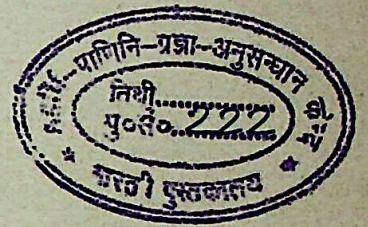 पाणिनि-प्रज्ञा-अनुसन्धान
तिथी..............
पु०सं०...222...
भारती पुस्तकालय